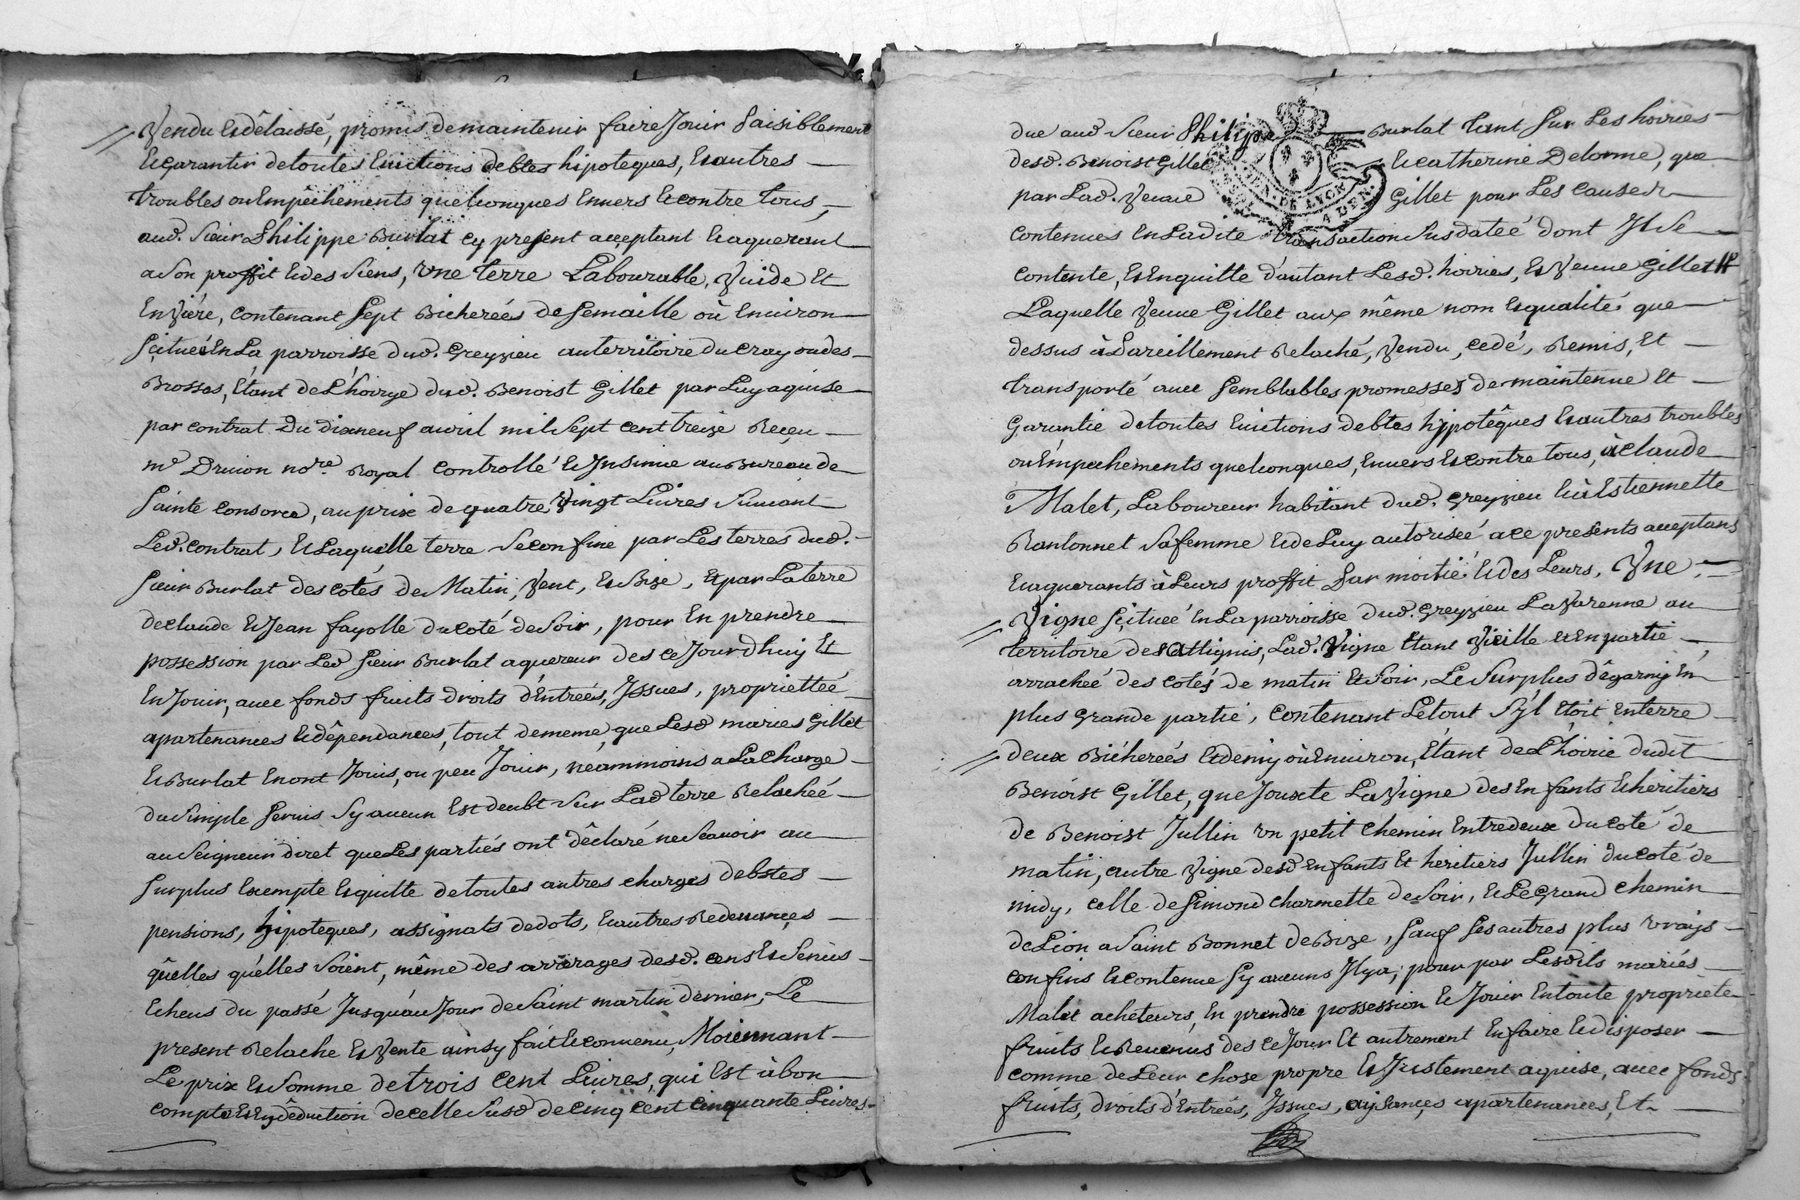 Vendu et délaissé, promis de maintenir faire Jouir Paisiblement
et garantir de toutes Evictions debtes hipoteques, et autres
troubles ou Empêchements quelconques Envers et contre tous,
aud. Sieur Philippe Burlat cy present acceptant et aquerant
a Son proffit et des Siens, Une terre Labourable, Vuide et
En Viére, contenant Sept Bicherées de Semaille où Environ
Scituéé En La parroisse dud. Greyzieu au territoire du Cray ou des
Brosses, Etant de L'hoirye dud. Benoist Gillet par Luy aquise
par contrat Du dixneuf avril mil Sept cent treize Reçeu
me Drivon nore Royal controllé et Insinué au Bureau de
Sainte Consorce, au prix de quatre Vingt Livres Suivant
Led. contrat, et Laquelle terre Se confine par Les terres dud.
Sieur Burlat des cotés de Matin, Vent, et Bize, et par La terre
de claude et Jean fayolle du coté de Soir, pour En prendre
possession par Led Sieur Burlat aquereur des ce Jourd'huy Et
En Jouir, avec fonds fruits droits d'Entrées, Issues, propriettéé
apartenances et dêpendances, tout de meme que Lesd mariés Gillet
et Burlat En ont Jouis, ou peu Jouir, neammoins a La Charge
du Simple Servis Sy aucun Est deubt Sur Lad terre Relachéé
au Seigneur diret que Les partiés ont dêclaré ne Scavoir au
Surplus Exempte et quitte de toutes autres charges debtes
pensions, hipoteques, assignats de dots, et autres Redevances
qûelles qu'elles Soient, même des arrérages desd. cens et Servis
Echeus du passé Jusqu'au Jour de Saint martin dernier, Le
present Relache et Vente ainsy fait et convenu, Moiennant
Le prix et Somme de trois Cent Livres, qui Est à bon
compte et En dêduction de celle Susd de Cinq cent cinquante Livres
due aud Sieur Philippe Burlat tant Sur Les hoiries
desd. Benoist Gillet et catherine Delorme, que
par Lad. Veuve Gillet pour Les Causes
contenues En Ladite transaction Susdatéé dont Il Se
contente, et Enquitte d'autant Lesd. hoiries, et Veuve Gillet
Laquelle Veuve Gillet aux même nom et qualités que
dessus à Pareillement Relaché, Vendu, cedé, Remis, Et
transporté avec Semblables promesses de maintenue Et
Garantie de toutes Evictions debtes hypotêques et autres troubles
ou Empechements quelconques, Envers et contre tous, à claude
Malet, Laboureur habitant dud. Greyzieu et à Estiennette
Rantonnet Sa femme et de Luy autorisée a ce presents acceptans
et aquerants à Leurs proffit Par moitié et des Leurs, Une
Vigne Scituéé En La parroisse dud. Greyzieu La Varenne au
territoire des Attignis, Lad. Vigne Etant Vieille et En partie
arrachéé des cotés de matin et Soir, Le Surplus dêgarny En
plus grande partie, contenant Le tout S'yl Etoit En terre
deux Bichereés et demy où Environ, Etant de L'hoirie dudit
Benoist Gillet, que Jouxte La Vigne des Enfants et heritiers
de Benoist Jullin un petit chemin Entredeux du coté de
matin, autre Vigne desd Enfants Et heritiers Jullin du coté de
midy, celle de Simond Charmette de Soir, et Le Grand chemin
de Lion a Saint Bonnet de Bize, Sauf Ses autres plus vrays
confins et contenue Sy aucuns Il y a; pour par Lesdits mariés
Malet acheteurs, En prendre possession et Jouir En toute propriete
fruits et Revenus des ce Jour Et autrement En faire et disposer
comme de Leur chose propre et Justement aquise, avec fonds
fruits, droits d'Entrées, Issues, aysances apartenances, Et
GEN. DE LYON